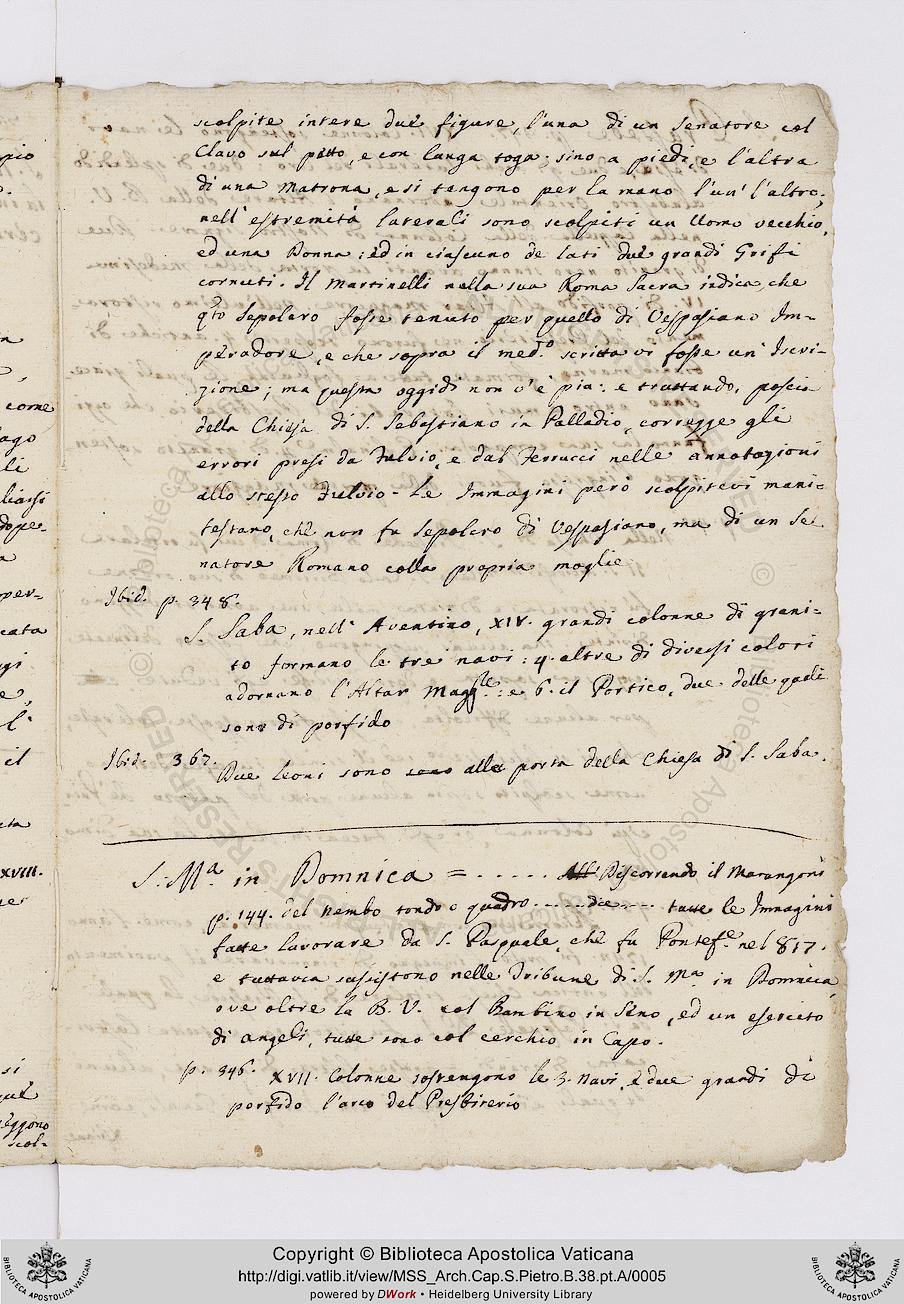 scolpite intere due figure, l'una di un Senatore col
Clavo sul petto, e con lunga toga sino a piedi, e l'altra
di una Matrona, e si tengono per la mano l'un' l'altro:
nell' estremità laterali sono scolpiti un Uomo vecchio,
ed una Donna: ed in ciascuno de lati due grandi Grifi
cornuti. Il Martinelli nella sua Roma Sacra indica, che
qto Sepolcro fosse tenuto per quello di Vespasiano Im-
peradore, e che sopra il med.o scritta vi fosse un' Iscri-
zione; ma questa oggidì non v'è più: e trattando, poscia
della Chiesa di S. Sebastiano in Palladio, corregge gli
errori presi da Fulvio, e dal Ferrucci nelle annotazioni
allo stesso Fulvio - Le Immagini però scolpitevi mani-
festano, che non fu Sepolcro di Vespasiano, ma di un Se-
natore Romano colla propria moglie
Ibid. p. 348.
S. Saba, nell' Aventino, XIV. grandi colonne di grani-
to formano le tre navi: 4. altre di diversi colori
adornano l'Altar Magg.le: e 6. il Portico, due delle quali
sono di porfido
Ibid. 367.
Due Leoni sono sono alla porta della Chiesa di S. Saba.
S. M.a in Domnica = . . . . . Discorrendo il Marangoni
p. 144. del Nembo tondo e quadro . . . . dice . . . . tutte le Immagini
fatte lavorare da S. Pasquale, che fu Pontef.e nel 817.
e tuttavia sussistono nelle Tribune di S. M.a in Domnica,
ove oltre la B. V. col Bambino in Sino, ed un esercito
di angeli, tutte sono col cerchio in Capo.
p. 346. XVII. Colonne sostengono le 3. Navi, e due grandi di
porfido l'arco del Presbiterio
pio
come
ago
li
liarsi
dope-
a
per-
cata
gi
e,
l'
il
eta
XVIII.
si
que
eggono
scol-
Copyright © Biblioteca Apostolica Vaticana
http://digi.vatlib.it/view/MSS_Arch.Cap.S.Pietro.B.38.pt.A/0005
powered by DWork • Heidelberg University Library
BIBLIOTECA APOSTOLICA VATICANA
BIBLIOTECA APOSTOLICA VATICANA